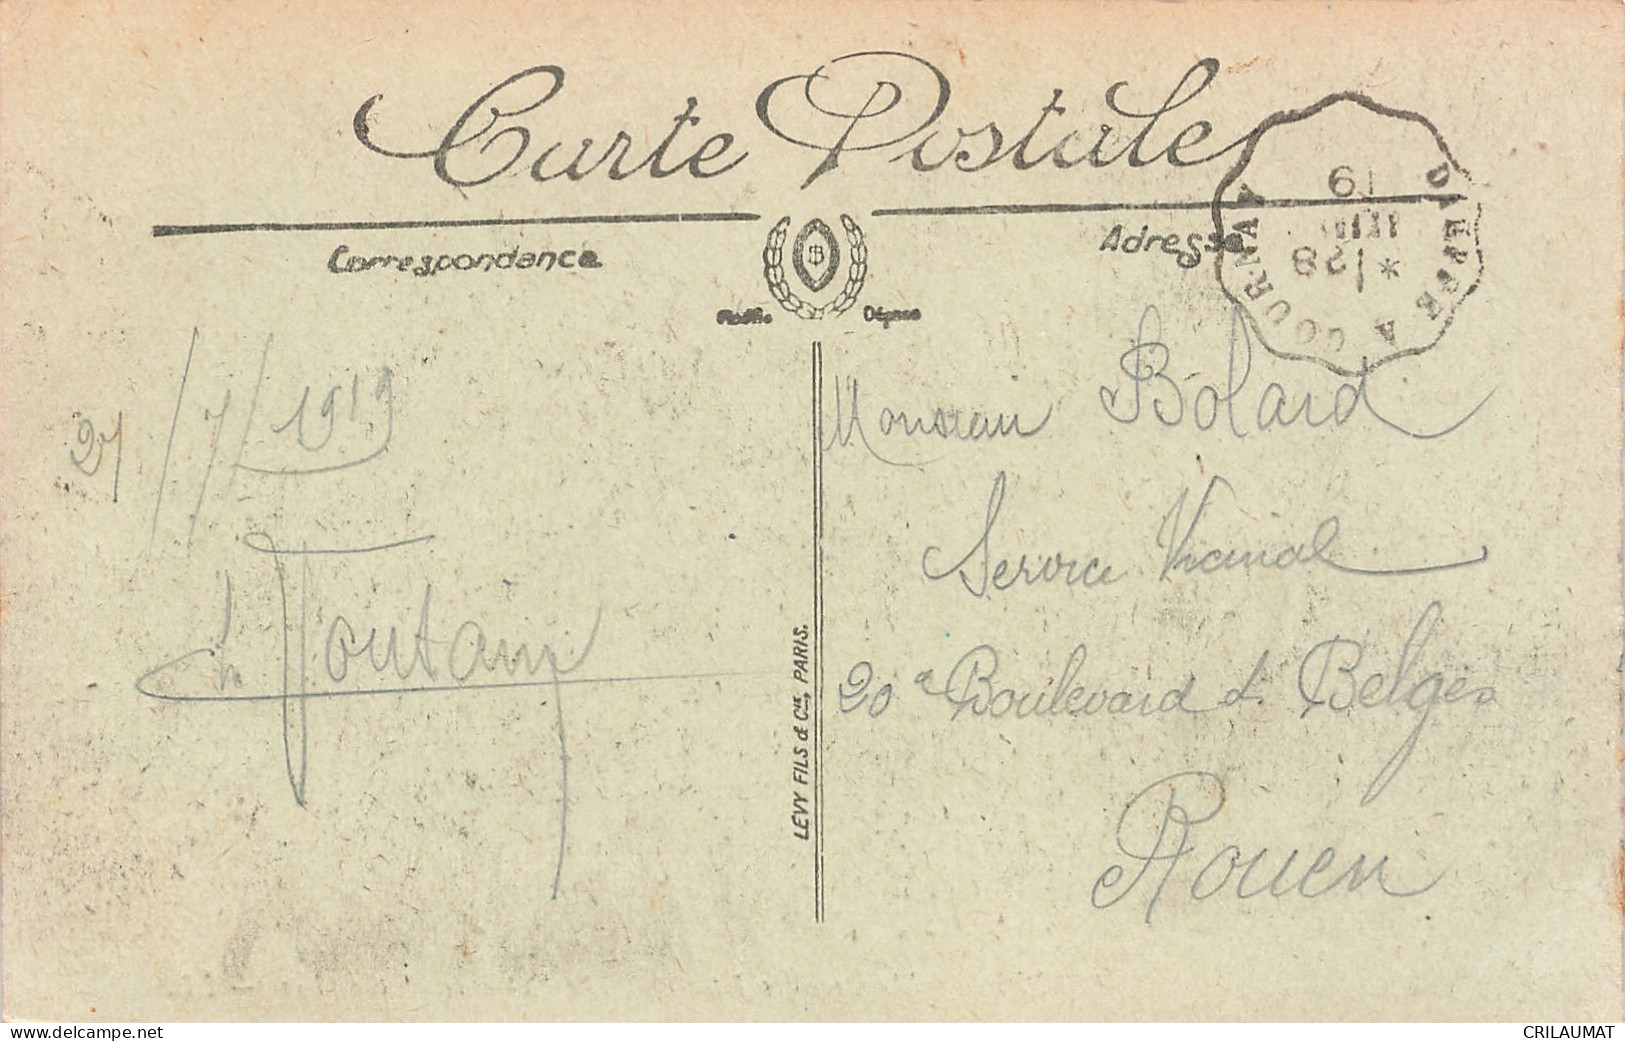 Carte Postale
Correspondance
Adresse
DIEPPE A GOURNAY
* 28
19
27/7/1919
Toutain
Monsieur Bolard
Service Vicinal
20 a Boulevard d. Belges
Rouen
LEVY FILS & Cie, PARIS.
delcampe.net
CRILAUMAT